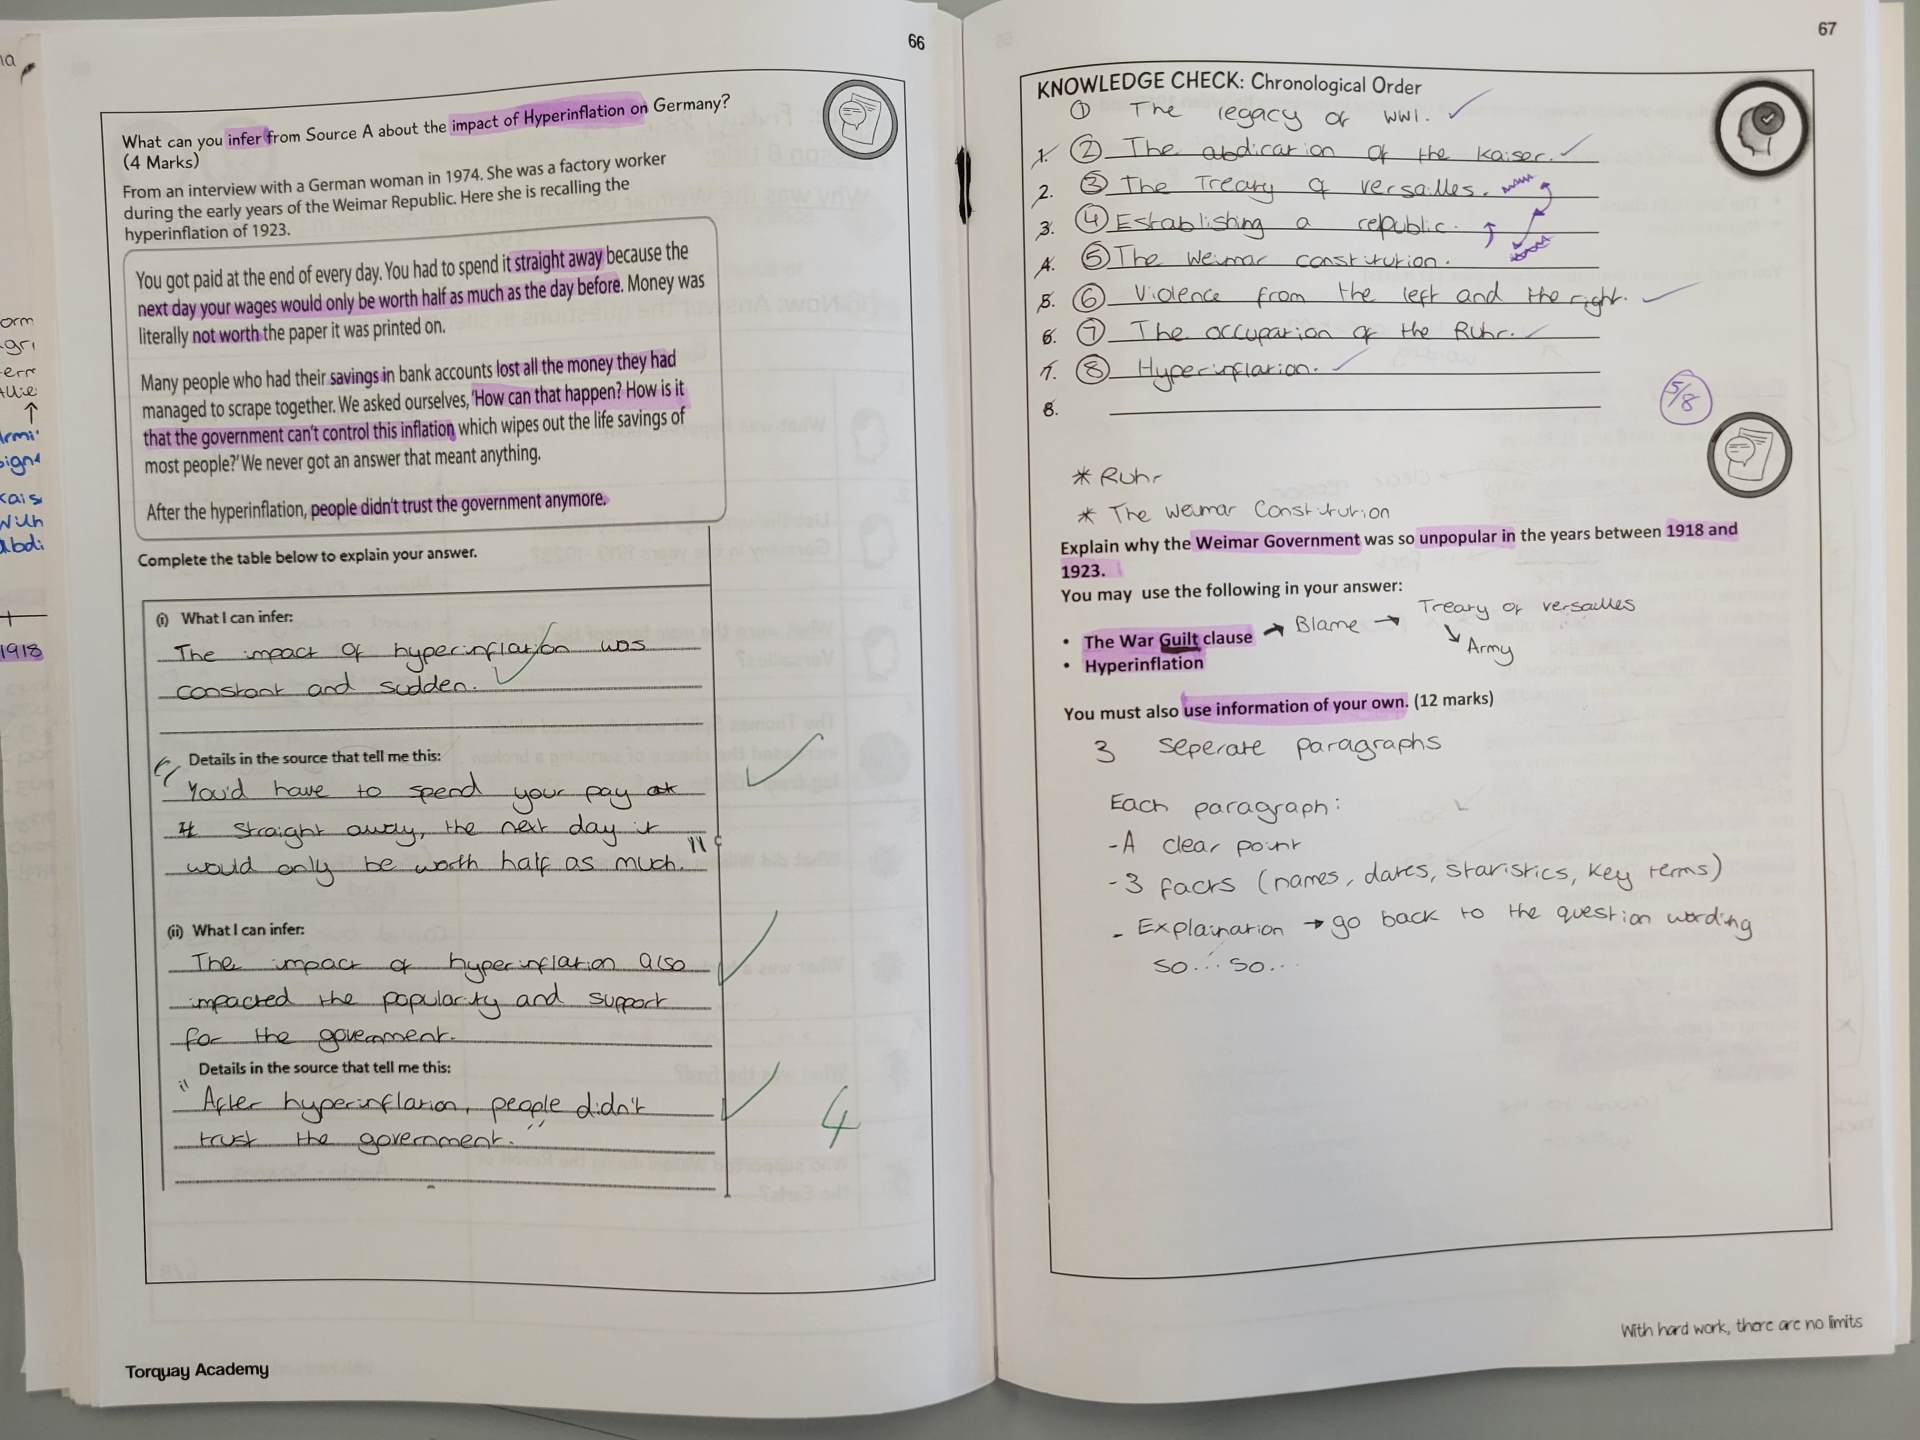 66
What can you infer from Source A about the impact of Hyperinflation on Germany?
(4 Marks)
From an interview with a German woman in 1974. She was a factory worker
during the early years of the Weimar Republic. Here she is recalling the
hyperinflation of 1923.
You got paid at the end of every day. You had to spend it straight away because the
next day your wages would only be worth half as much as the day before. Money was
literally not worth the paper it was printed on.
Many people who had their savings in bank accounts lost all the money they had
managed to scrape together. We asked ourselves, 'How can that happen? How is it
that the government can't control this inflation which wipes out the life savings of
most people?' We never got an answer that meant anything.
After the hyperinflation, people didn't trust the government anymore.
Complete the table below to explain your answer.
(i) What I can infer:
The impact of hyperinflation was
constant and sudden.
Details in the source that tell me this:
"You'd have to spend your pay
straight away, the next day it
would only be worth half as much."
(ii) What I can infer:
The impact of hyperinflation also
impacted the popularity and support
for the government.
Details in the source that tell me this:
"After hyperinflation, people didn't
trust the government."
4
Torquay Academy
67
KNOWLEDGE CHECK: Chronological Order
① The legacy of WW1.
1. ② The abdication of the Kaiser.
2. ③ The Treaty of Versailles.
3. ④ Establishing a republic.
4. ⑤ The Weimar constitution.
5. ⑥ Violence from the left and the right.
6. ⑦ The occupation of the Ruhr.
7. ⑧ Hyperinflation.
8.
5/8
* Ruhr
* The Weimar Constitution
Explain why the Weimar Government was so unpopular in the years between 1918 and
1923.
You may use the following in your answer:
• The War Guilt clause → Blame → Treaty of Versailles
↘ Army
• Hyperinflation
You must also use information of your own. (12 marks)
3 seperate paragraphs
Each paragraph:
- A clear point
- 3 facts (names, dates, statistics, key terms)
- Explaination → go back to the question wording
so... so...
With hard work, there are no limits
1918